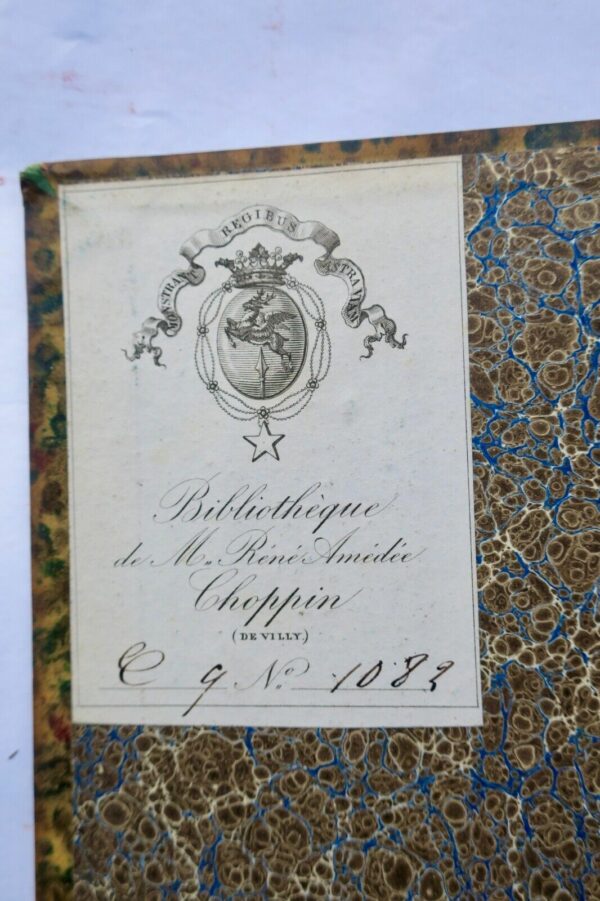 MONSTRANT REGIBUS ASTRA VIAM
Bibliothèque
de M. Réné Amédée
Choppin
(DE VILLY.)
C 9 No. 1082